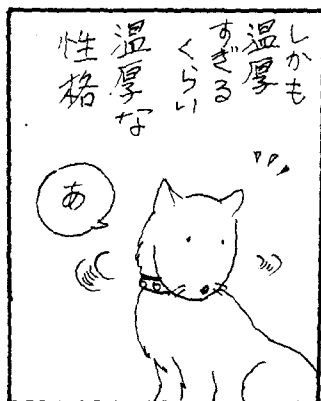 しかも
温厚
すぎる
くらい
温厚な
性格
あ